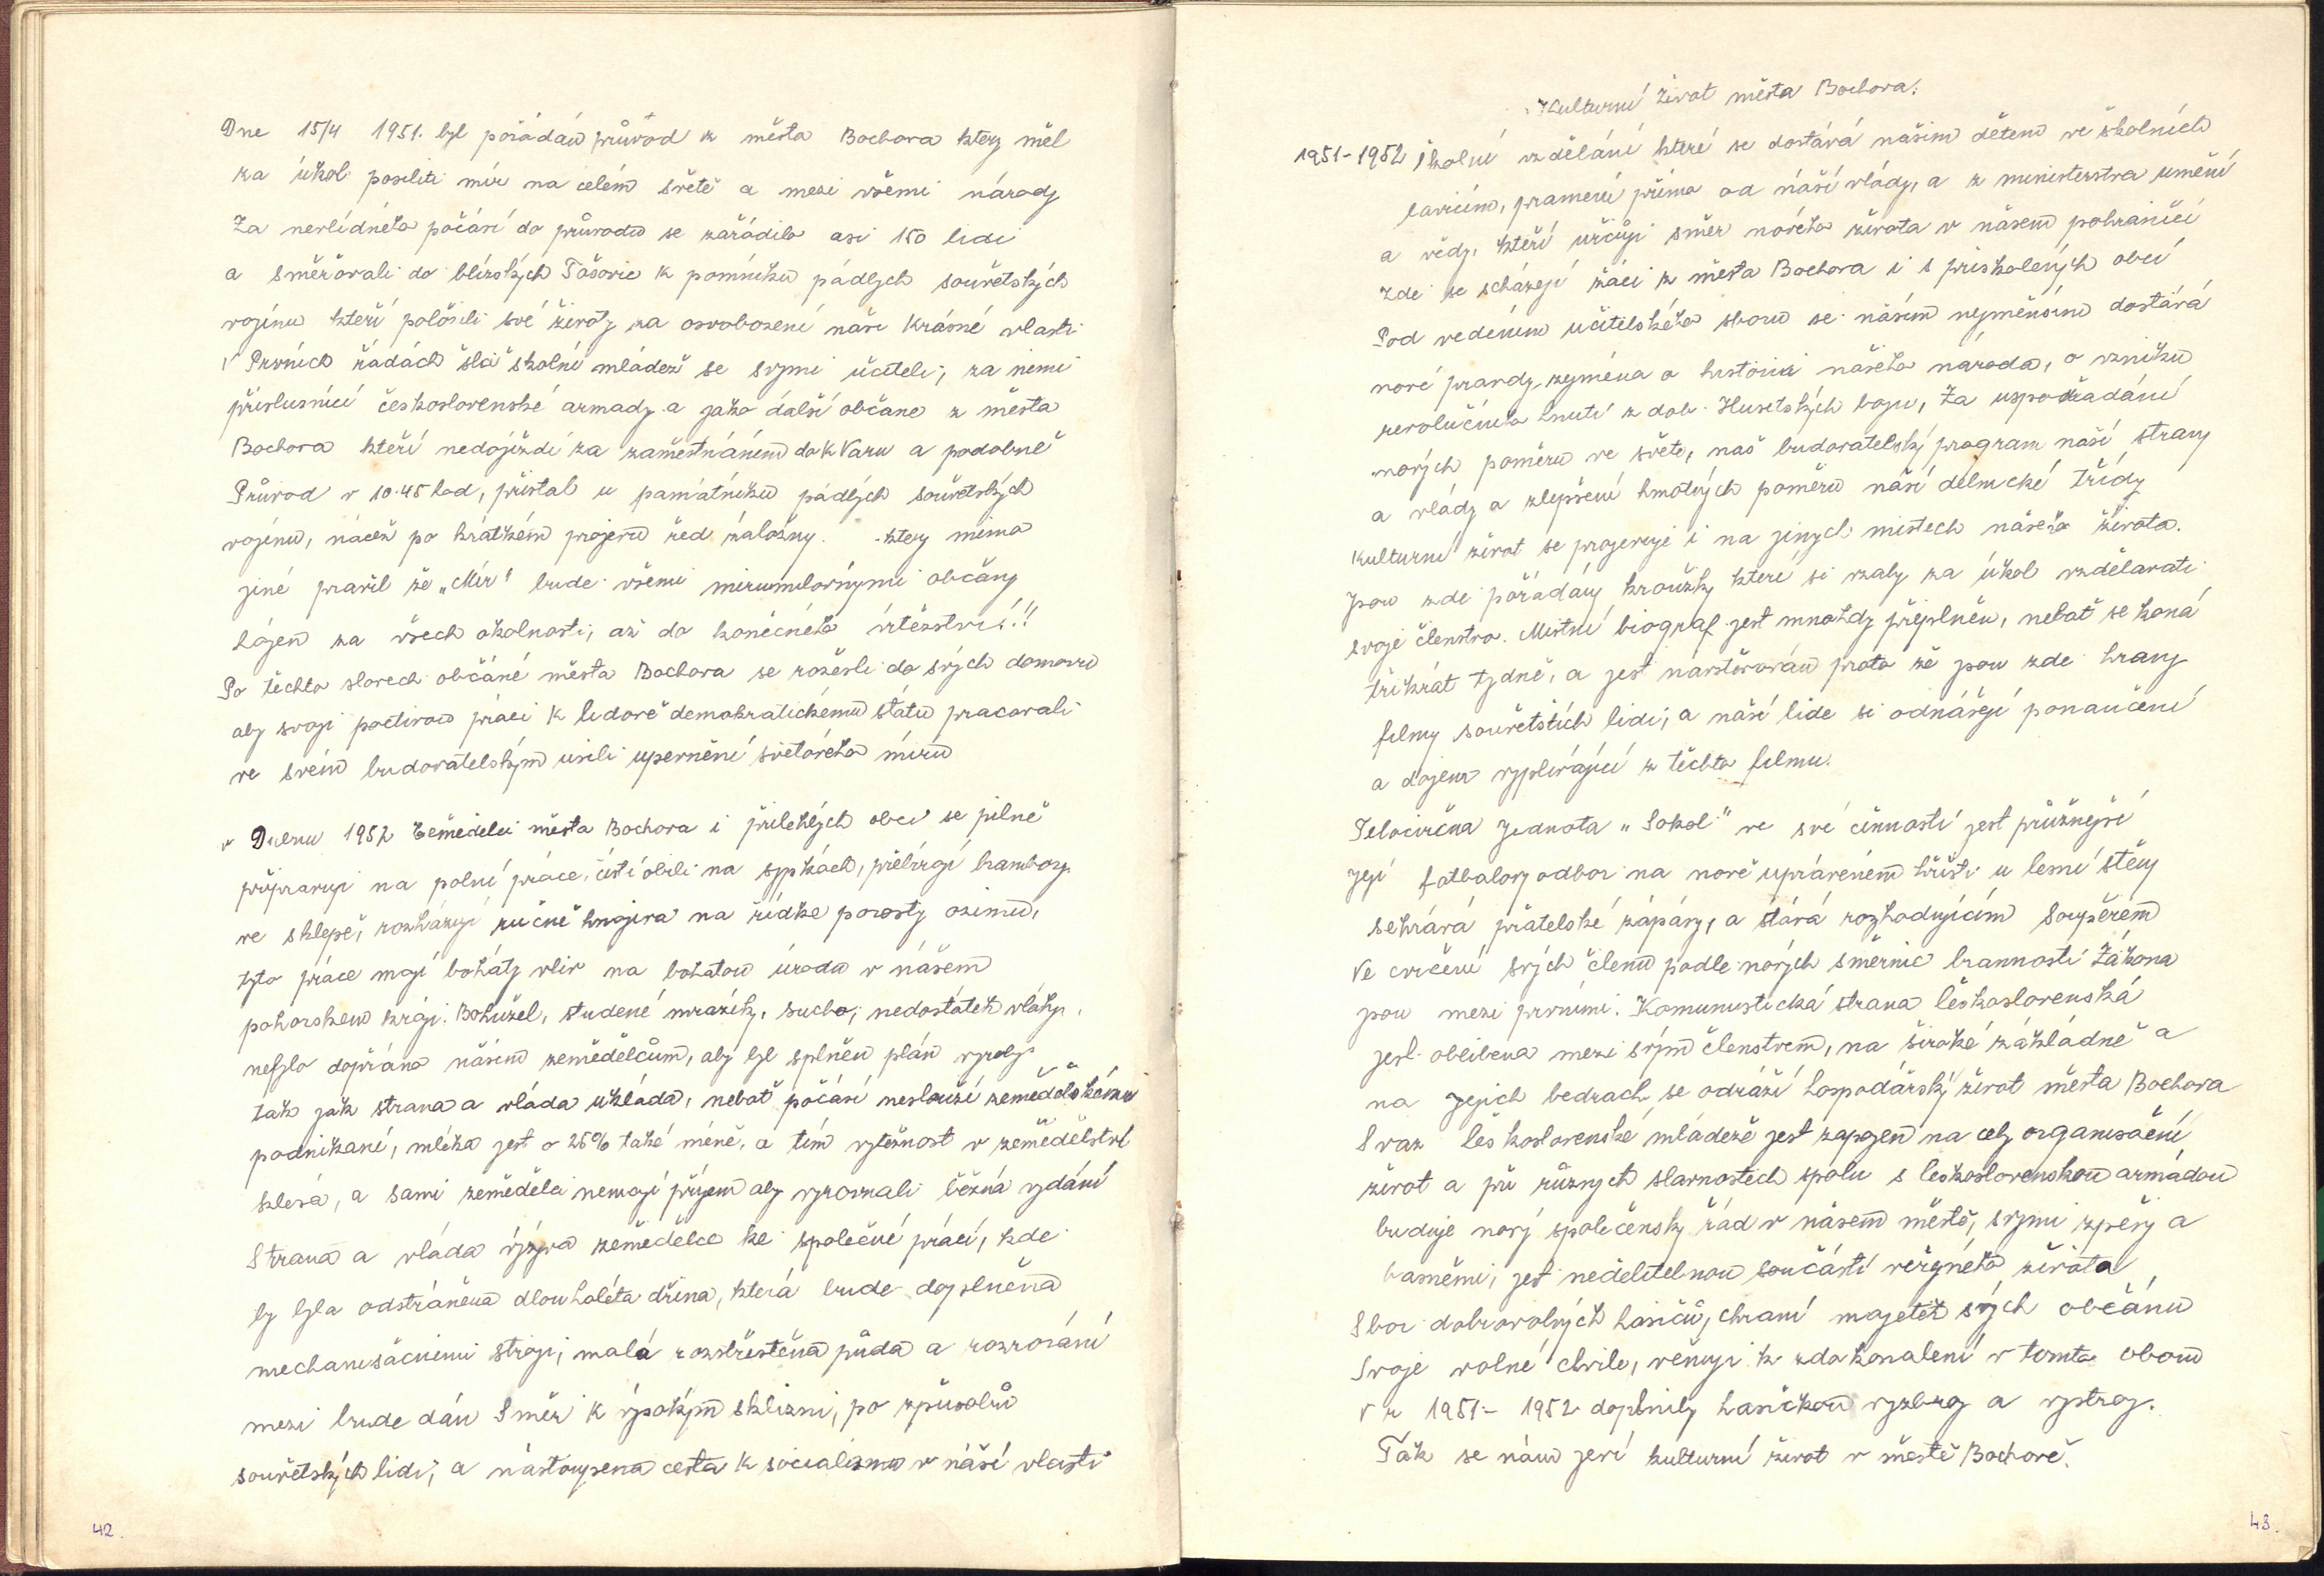 Dne 15/4 1951. byl pořádán průvod z města Bochova ktery měl
za úkol posíliti mír na celém světě a mezi všemi národy
Za nevlídného počásí do průvodu se zařádilo asi 150 lidi
a směřovali do blízských Tašovic k pomníku pádlych souvětských
vojínu kteří položili své životy za osvobození náši krásné vlasti
V Prvních řádách šla školní mládež se svymi učiteli, za nimi
příslusníci československé armady a jako další občane z města
Bochova kteří nedojíždí za zaměstnáním do K Varu a podobně
Průvod v 10.45 hod, přistal u památníku pádlých souvětských
vojínu, načež po krátkém projevu řed. záložny. ktery mimo
jiné pravil že „Mír" bude všemi mirumilovnymi občany
hájen za všech okolnosti, až do konečného vítězství!!
Po těchto slovech občáné města Bochova se rozešli do svých domovu
aby svoji poctivou práci k lidově demokratickému státu pracovali
ve svém budovatelským usili upevnění světového míru
v Dubnu 1952 Zemědelci města Bochova i přilehlých obcí se pilně
připravuji na polní práce, čistí obilí na sypkách, přebírají brambory
ve sklepě, rozhazují ručně hnojiva na řídke porosty ozimu,
tyto práce mají bohátý vliv na bohatou úrodu v nášem
pohorskem kráji. Bohužel, studené mrazíky, sucho, nedostátek vláhy,
nebylo dopřáno nášim zemědělcům, aby byl splněn plán vyroby
tak jak strana a vláda ukláda, nebot počásí neslouží zemedělskému
podnikaní, mléka jest o 25% také méně, a tím vytěžnost v zemědělství
klesá, a sami zemědělci nemají příjem aby vyrovnali běžná vydání
Strana a vláda vyzyva zemědělce ke společné práci, kde
by byla odstráněna dlouholéta dřina, která bude doplněna
mechanisáčními stroji, malá rozstřístěna půda a rozorání
mezi bude dán Směr k vysokým sklizni, po způsobu
souvětských lidi, a nástoupena cesta k socialismu v náší vlasti
42.
Kulturní život města Bochova:
1951-1952 školní vzdělání které se dostává našim dětem ve školních
lavicím, pramení přímo od náší vlády, a z ministerstva umění
a vědy, kteří určuji směr nového života v nášem pohraničí
Zde se scházejí žáci z města Bochova i s priskolených obcí
Pod vedením učitelského sboru se nášim nyměnsim dostává
nové pravdy zejména o historii našeho národa, o vzniku
revolučního hnutí z dob Husitských boju, Za uspořádání
nových poměru ve světe, naš budovatelský program naší strany
a vlády a zlepšení hmotných poměru náší dělnické třídy
kulturní život se projevuje i na jinych mistech nášeho života.
jsou zde pořádány kroužky které si vzaly za úkol vzdělavati
svoje členstvo. Mistní biograf jest mnohdy přeplněn, nebot se koná
třikrát tydně, a jest navštěvován proto že jsou zde hrany
filmy souvětštích lidi, a náší lide si odnášejí ponaučení
a dojem vyplívájící z těchto filmu.
Tělocvična Jednota „Sokol" ve své činností jest průžnejší
Její fotbalovy odbor na nově uprávěném hřišti u lesní stěny
sehrává přátelské zápásy, a stává rozhodujícím Soupeřem
Ve cvičení svých členu podle nových směrnic brannosti Zákona
jsou mezi prvními. Komunistická strana československá
jest oblíbena mezi svým členstvem, na široké základně a
na Jejich bedrach se odráží hospodářský život města Bochova
Svaz československé mládeže jest zapojen na cely organisační
život a při různych slavnostech spolu s československou armádou
buduje nový společensky řád v násem městě, svymi zpěvy a
basněmi, jest nedelitelnou součástí veřejného života
Sbor dobrovolných hasičů, chraní majetek svých občánu
Svoje volné chvile, věnuji k zdokonalení v tomto oboru
V r 1951- 1952 doplnily hasičkou vyzbroj a vystroj.
Ták se nám jeví kulturní život v městě Bochově.
43.